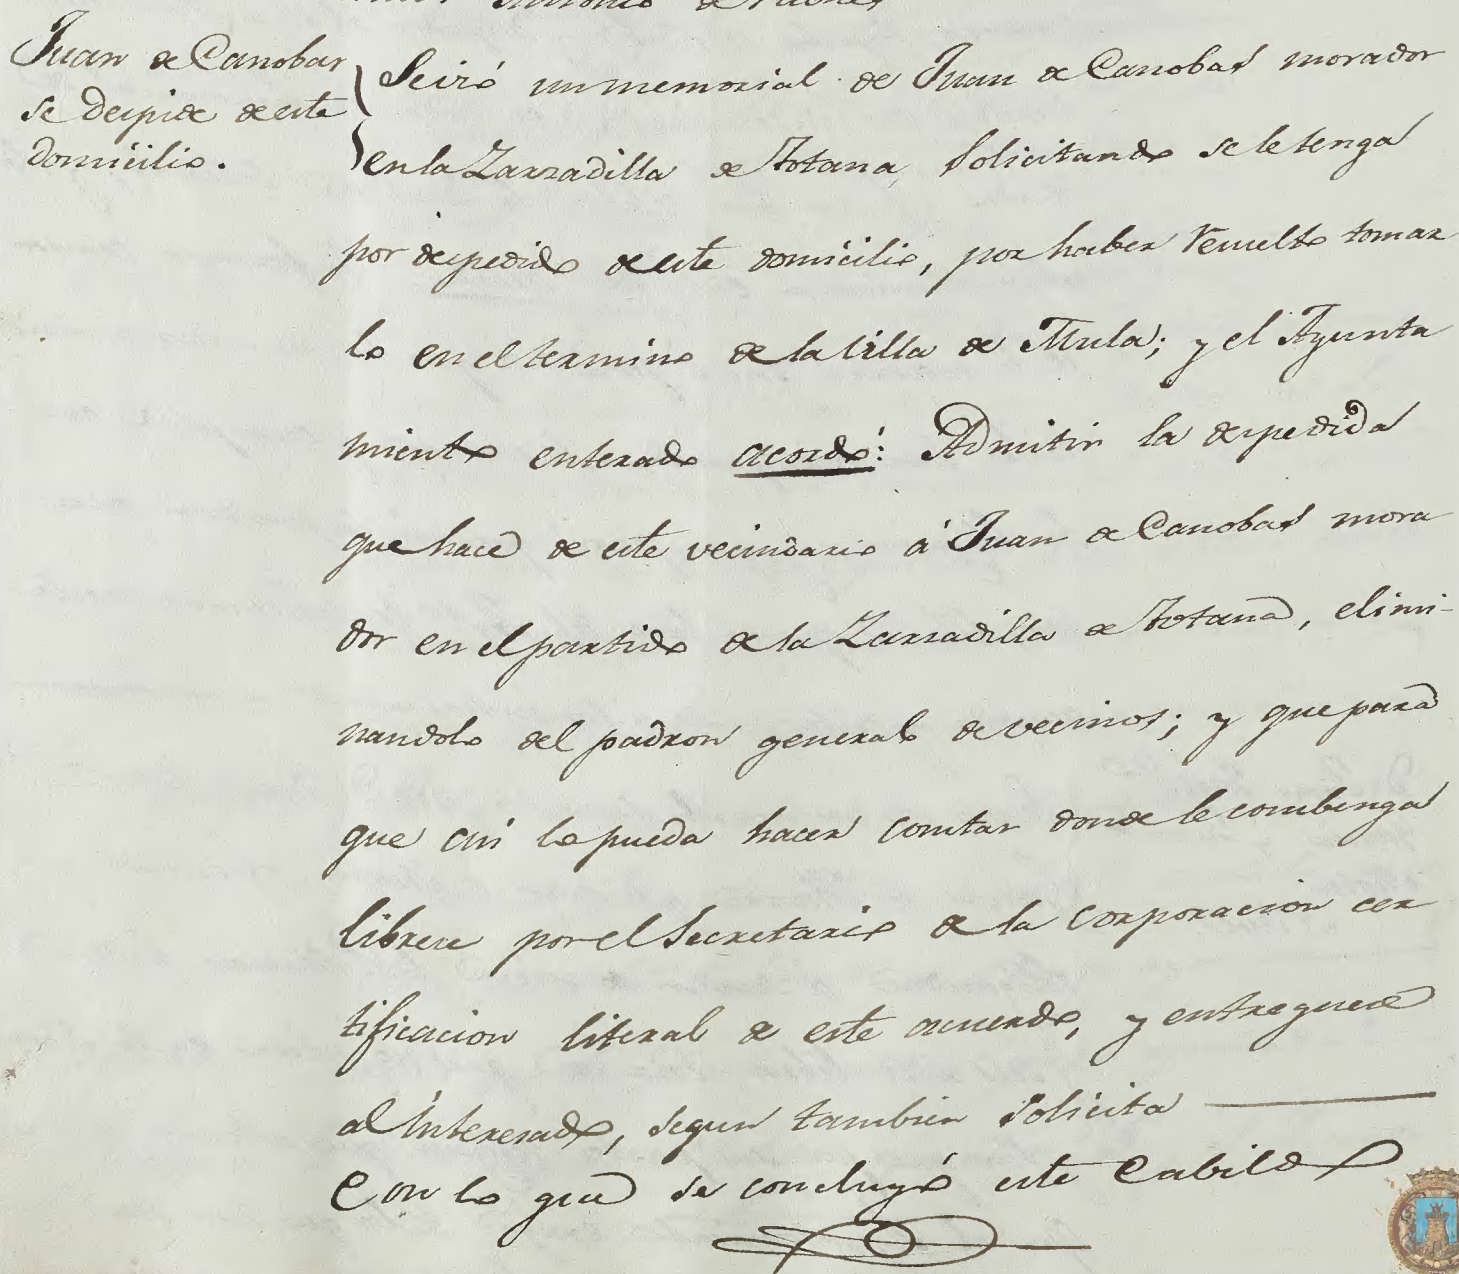 Antonio de
Juan de Canobas
se despide de este
domicilio.
Se vió un memorial de Juan de Canobas morador
en la Zarzadilla de Totana, solicitando se le tenga
por despedido de este domicilio, por haber resuelto tomar
lo en el termino de la villa de Mula; y el Ayunta
miento enterado acordó: Admitir la despedida
que hace de este vecindario á Juan de Canobas mora
dor en el partido de la Zarzadilla de Totana, elimi-
nandolo del padron general de vecinos; y que para
que asi lo pueda hacer constar donde le combenga
librese por el Secretario de la Corporacion cer
tificacion literal de este acuerdo, y entreguese
al interesado, segun tambien solicita
Con lo que se concluyó este Cabildo